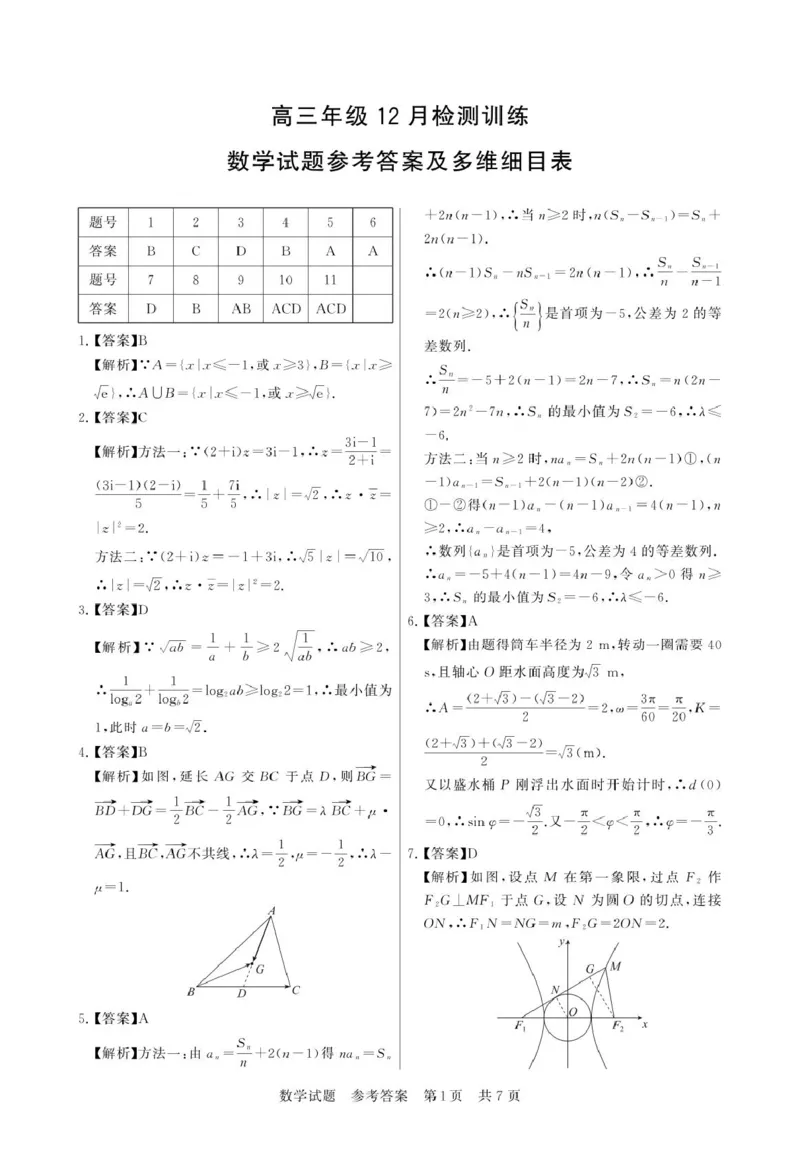 高三年级 12 月检测训练
数学试题参考答案及多维细目表
题号 1 2 3 4 5 6
答案 B C D B A A
题号 7 8 9 10 11
答案 D B AB ACD ACD
1.【答案】B
【解析】∵A={x|x≤-1,或 x≥3},B={x|x≥
√e},∴A∪B={x|x≤-1,或x≥√e}.
2.【答案】C
【解析】方法一:∵(2+i)z=3i-1,∴z=(3i-1)/(2+i)=
(3i-1)(2-i)/5=1/5+7i/5,∴|z|=√2,∴z·z̅=
|z|²=2.
方法二:∵(2+i)z=-1+3i,∴√5|z|=√10,
∴|z|=√2,∴z·z̅=|z|²=2.
3.【答案】D
【解析】∵√ab=1/a+1/b≥2√(1/ab),∴ab≥2,
∴1/logₐ2+1/log_b2=log₂ab≥log₂2=1,∴最小值为
1,此时 a=b=√2.
4.【答案】B
【解析】如图,延长 AG 交 BC 于点 D,则BG→=
BD→+DG→=1/2BC→-1/2AG→,∵BG→=λBC→+μ·
AG→,且BC→,AG→不共线,∴λ=1/2,μ=-1/2,∴λ-
μ=1.
A
G
B D C
5.【答案】A
【解析】方法一:由 aₙ=Sₙ/n+2(n-1)得 naₙ=Sₙ
+2n(n-1),∴当 n≥2 时,n(Sₙ-Sₙ₋₁)=Sₙ+
2n(n-1).
∴(n-1)Sₙ-nSₙ₋₁=2n(n-1),∴Sₙ/n-Sₙ₋₁/(n-1)
=2(n≥2),∴{Sₙ/n}是首项为-5,公差为 2 的等
差数列.
∴Sₙ/n=-5+2(n-1)=2n-7,∴Sₙ=n(2n-
7)=2n²-7n,∴Sₙ 的最小值为 S₂=-6,∴λ≤
-6.
方法二:当 n≥2 时,naₙ=Sₙ+2n(n-1)①,(n
-1)aₙ₋₁=Sₙ₋₁+2(n-1)(n-2)②.
①-②得(n-1)aₙ-(n-1)aₙ₋₁=4(n-1),n
≥2,∴aₙ-aₙ₋₁=4,
∴数列{aₙ}是首项为-5,公差为 4 的等差数列.
∴aₙ=-5+4(n-1)=4n-9,令 aₙ>0 得 n≥
3,∴Sₙ 的最小值为S₂=-6,∴λ≤-6.
6.【答案】A
【解析】由题得筒车半径为 2 m,转动一圈需要 40
s,且轴心 O 距水面高度为√3 m,
∴A=((2+√3)-(√3-2))/2=2,ω=3π/60=π/20,K=
((2+√3)+(√3-2))/2=√3(m).
又以盛水桶 P 刚浮出水面时开始计时,∴d(0)
=0,∴sin φ=-√3/2.又-π/2<φ<π/2,∴φ=-π/3.
7.【答案】D
【解析】如图,设点 M 在第一象限,过点 F₂ 作
F₂G⊥MF₁ 于点 G,设 N 为圆 O 的切点,连接
ON,∴F₁N=NG=m,F₂G=2ON=2.
y
G M
N
O
F₁ F₂ x
数学试题 参考答案 第1页 共7页